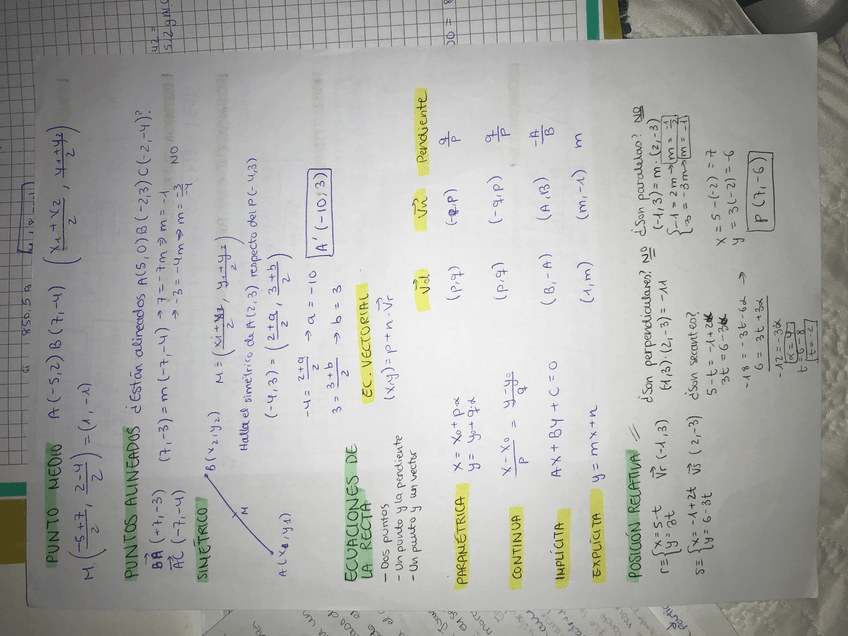 PUNTO MEDIO A(-5,2) B(7,-4) (x1+x2/2, y1+y2/2)
M(-5+7/2, 2-4/2) = (1,-1)
PUNTOS ALINEADOS ¿Están alineados A(5,0) B(-2,3) C(-2,-4)?
BA (+7,-3) (7,-3) = m(-7,-4) → 7=-7m ⇒ m=-1
AC (-7,-4) → -3=-4m ⇒ m=-3/-4 NO
SIMÉTRICO
B(x2,y2)
M
A(x1,y1)
M = (x1+x2/2, y1+y2/2)
Halla el simétrico de A(2,3) respecto del P(-4,3)
(-4,3) = (2+a/2, 3+b/2)
-4 = 2+a/2 → a=-10
3 = 3+b/2 → b=3
A'(-10,3)
ECUACIONES DE LA RECTA
- Dos puntos
- Un punto y la pendiente
- Un punto y un vector
EC. VECTORIAL
(x,y) = p+n·Vr
Vd Vn Pendiente
PARAMÉTRICA x=x0+p·α (p,q) (-q,p) q/p
y=y0+q·α
CONTINUA x-x0/p = y-y0/q (p,q) (-q,p) q/p
IMPLÍCITA Ax+By+C=0 (B,-A) (A,B) -A/B
EXPLÍCITA y=mx+n (1,m) (m,-1) m
POSICIÓN RELATIVA
r={x=5-t Vr (-1,3)
y=3t
s={x=-1+2t Vs (2,-3)
y=6-3t
¿Son perpendiculares? NO
(-1,3)·(2,-3) = -11
¿Son secantes?
5-t=-1+2α
3t=6-3α
-18=-3t-6α →
6=3t+3α
-12=-3α
α=4
t=6-8
t=-2
¿Son paralelas? NO
(-1,3) = m·(2,-3)
{-1=2m → m=-1/2
3=-3m → m=-1
x=5-(-2)=7
y=3(-2)=-6
P(7,-6)